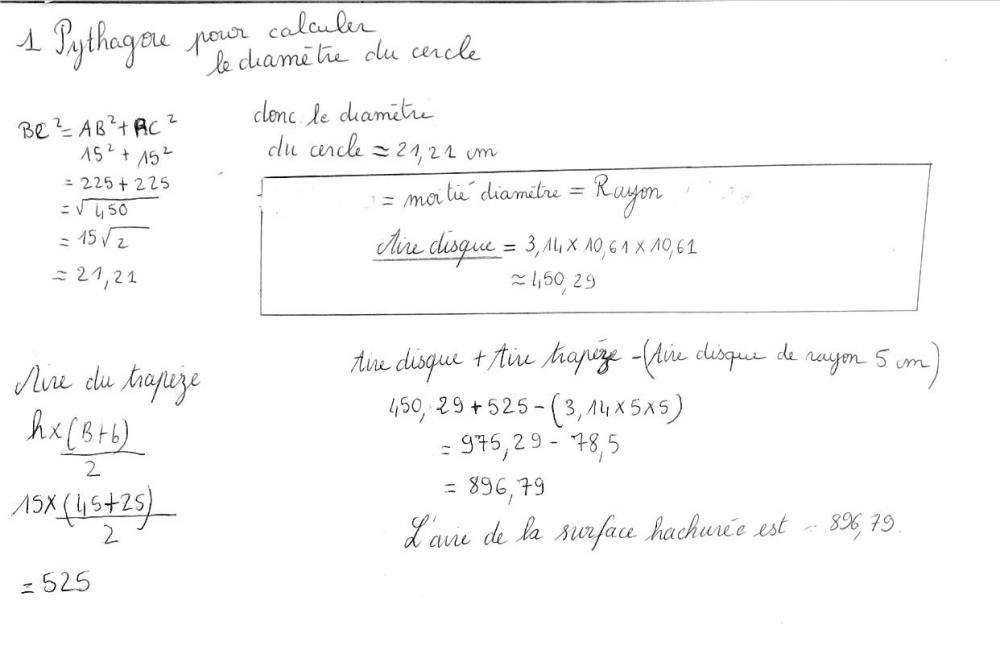 1 Pythagore pour calculer
le diamètre du cercle
BC² = AB² + AC²
15² + 15²
= 225 + 225
= √450
= 15√2
≈ 21,21
donc le diamètre
du cercle ≈ 21,21 cm
= moitié diamètre = Rayon
Aire disque = 3,14 × 10,61 × 10,61
≈ 450,29
Aire du trapèze
h×(B+b)
2
15×(45+25)
2
= 525
Aire disque + Aire trapèze - (Aire disque de rayon 5 cm)
450,29 + 525 - (3,14 × 5 × 5)
= 975,29 - 78,5
= 896,79
L'aire de la surface hachurée est ≈ 896,79.